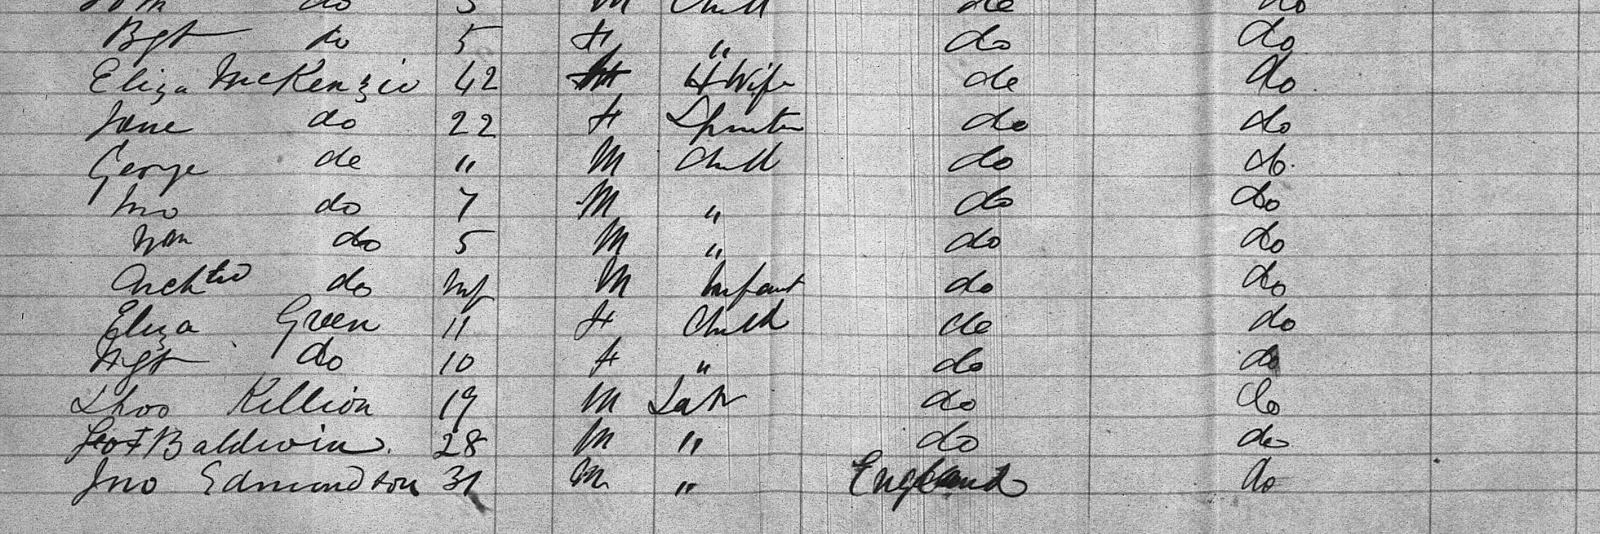 Wm do 5 M Child do do
Bgt do 5 F " do do
Eliza McKenzie 42 F H Wife do do
Jane do 22 F Spinster do do
George do " M Child do do
Jno do 7 M " do do
Wm do 5 M " do do
do Inf M Infant do do
Eliza Green 11 F Child do do
Mgt do 10 F " do do
Thos Killion 19 M Labr do do
Baldwin. 28 M " do do
Jno Edmondson 31 M " England do